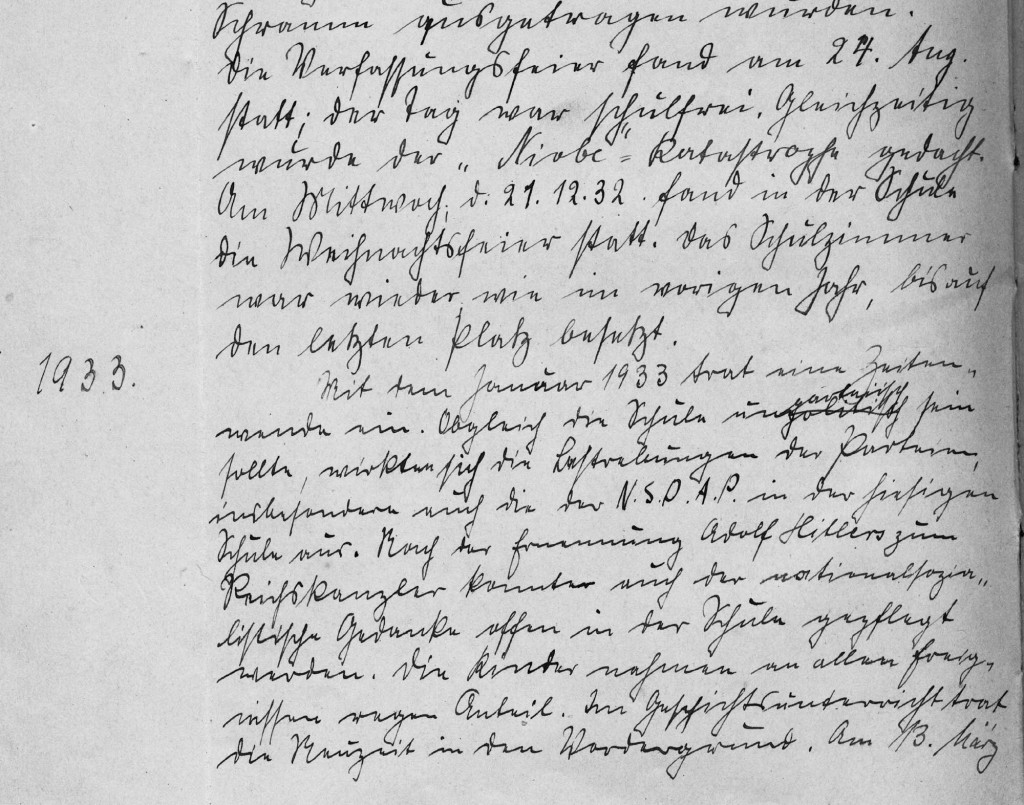 Schramm ausgetragen wurden.
Die Verfassungsfeier fand am 24. Aug.
statt; der Tag war schulfrei. Gleichzeitig
wurde der „Niobe“-Katastrophe gedacht.
Am Mittwoch, d. 21.12.32. fand in der Schule
die Weihnachtsfeier statt. Das Schulzimmer
war wieder, wie im vorigen Jahr, bis auf
den letzten Platz besetzt.
1933.
Mit dem Januar 1933 trat eine Zeiten-
wende ein. Obgleich die Schule unpolitisch parteiisch sein
sollte, wirkten sich die Bestrebungen der Parteien,
insbesondere auch die der N.S.D.A.P. in der hiesigen
Schule aus. Nach der Ernennung Adolf Hitlers zum
Reichskanzler konnte auch der nationalsozia-
listische Gedanke offen in der Schule gepflegt
werden. Die Kinder nahmen an allen Ereig-
nissen regen Anteil. Im Geschichtsunterricht trat
die Neuzeit in den Vordergrund. Am 13. März